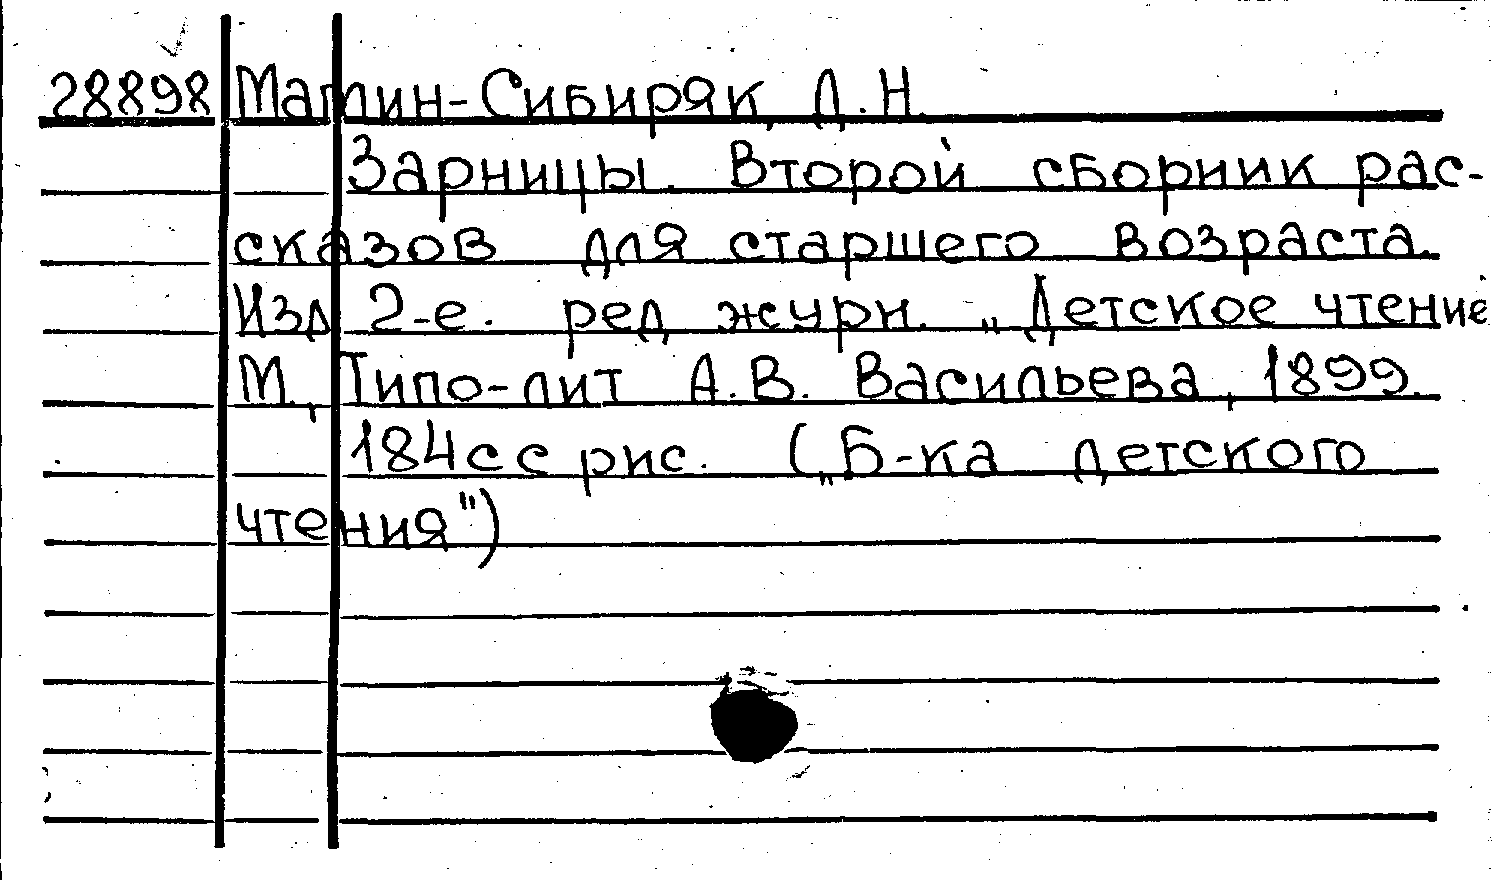 28898 Мамин-Сибиряк, Д.Н.
Зарницы. Второй сборник рас-
сказов для старшего возраста.
Изд 2-е. ред журн. „Детское чтение
М., Типо-лит А.В. Васильева, 1899.
184с с рис. („Б-ка детского
чтения")